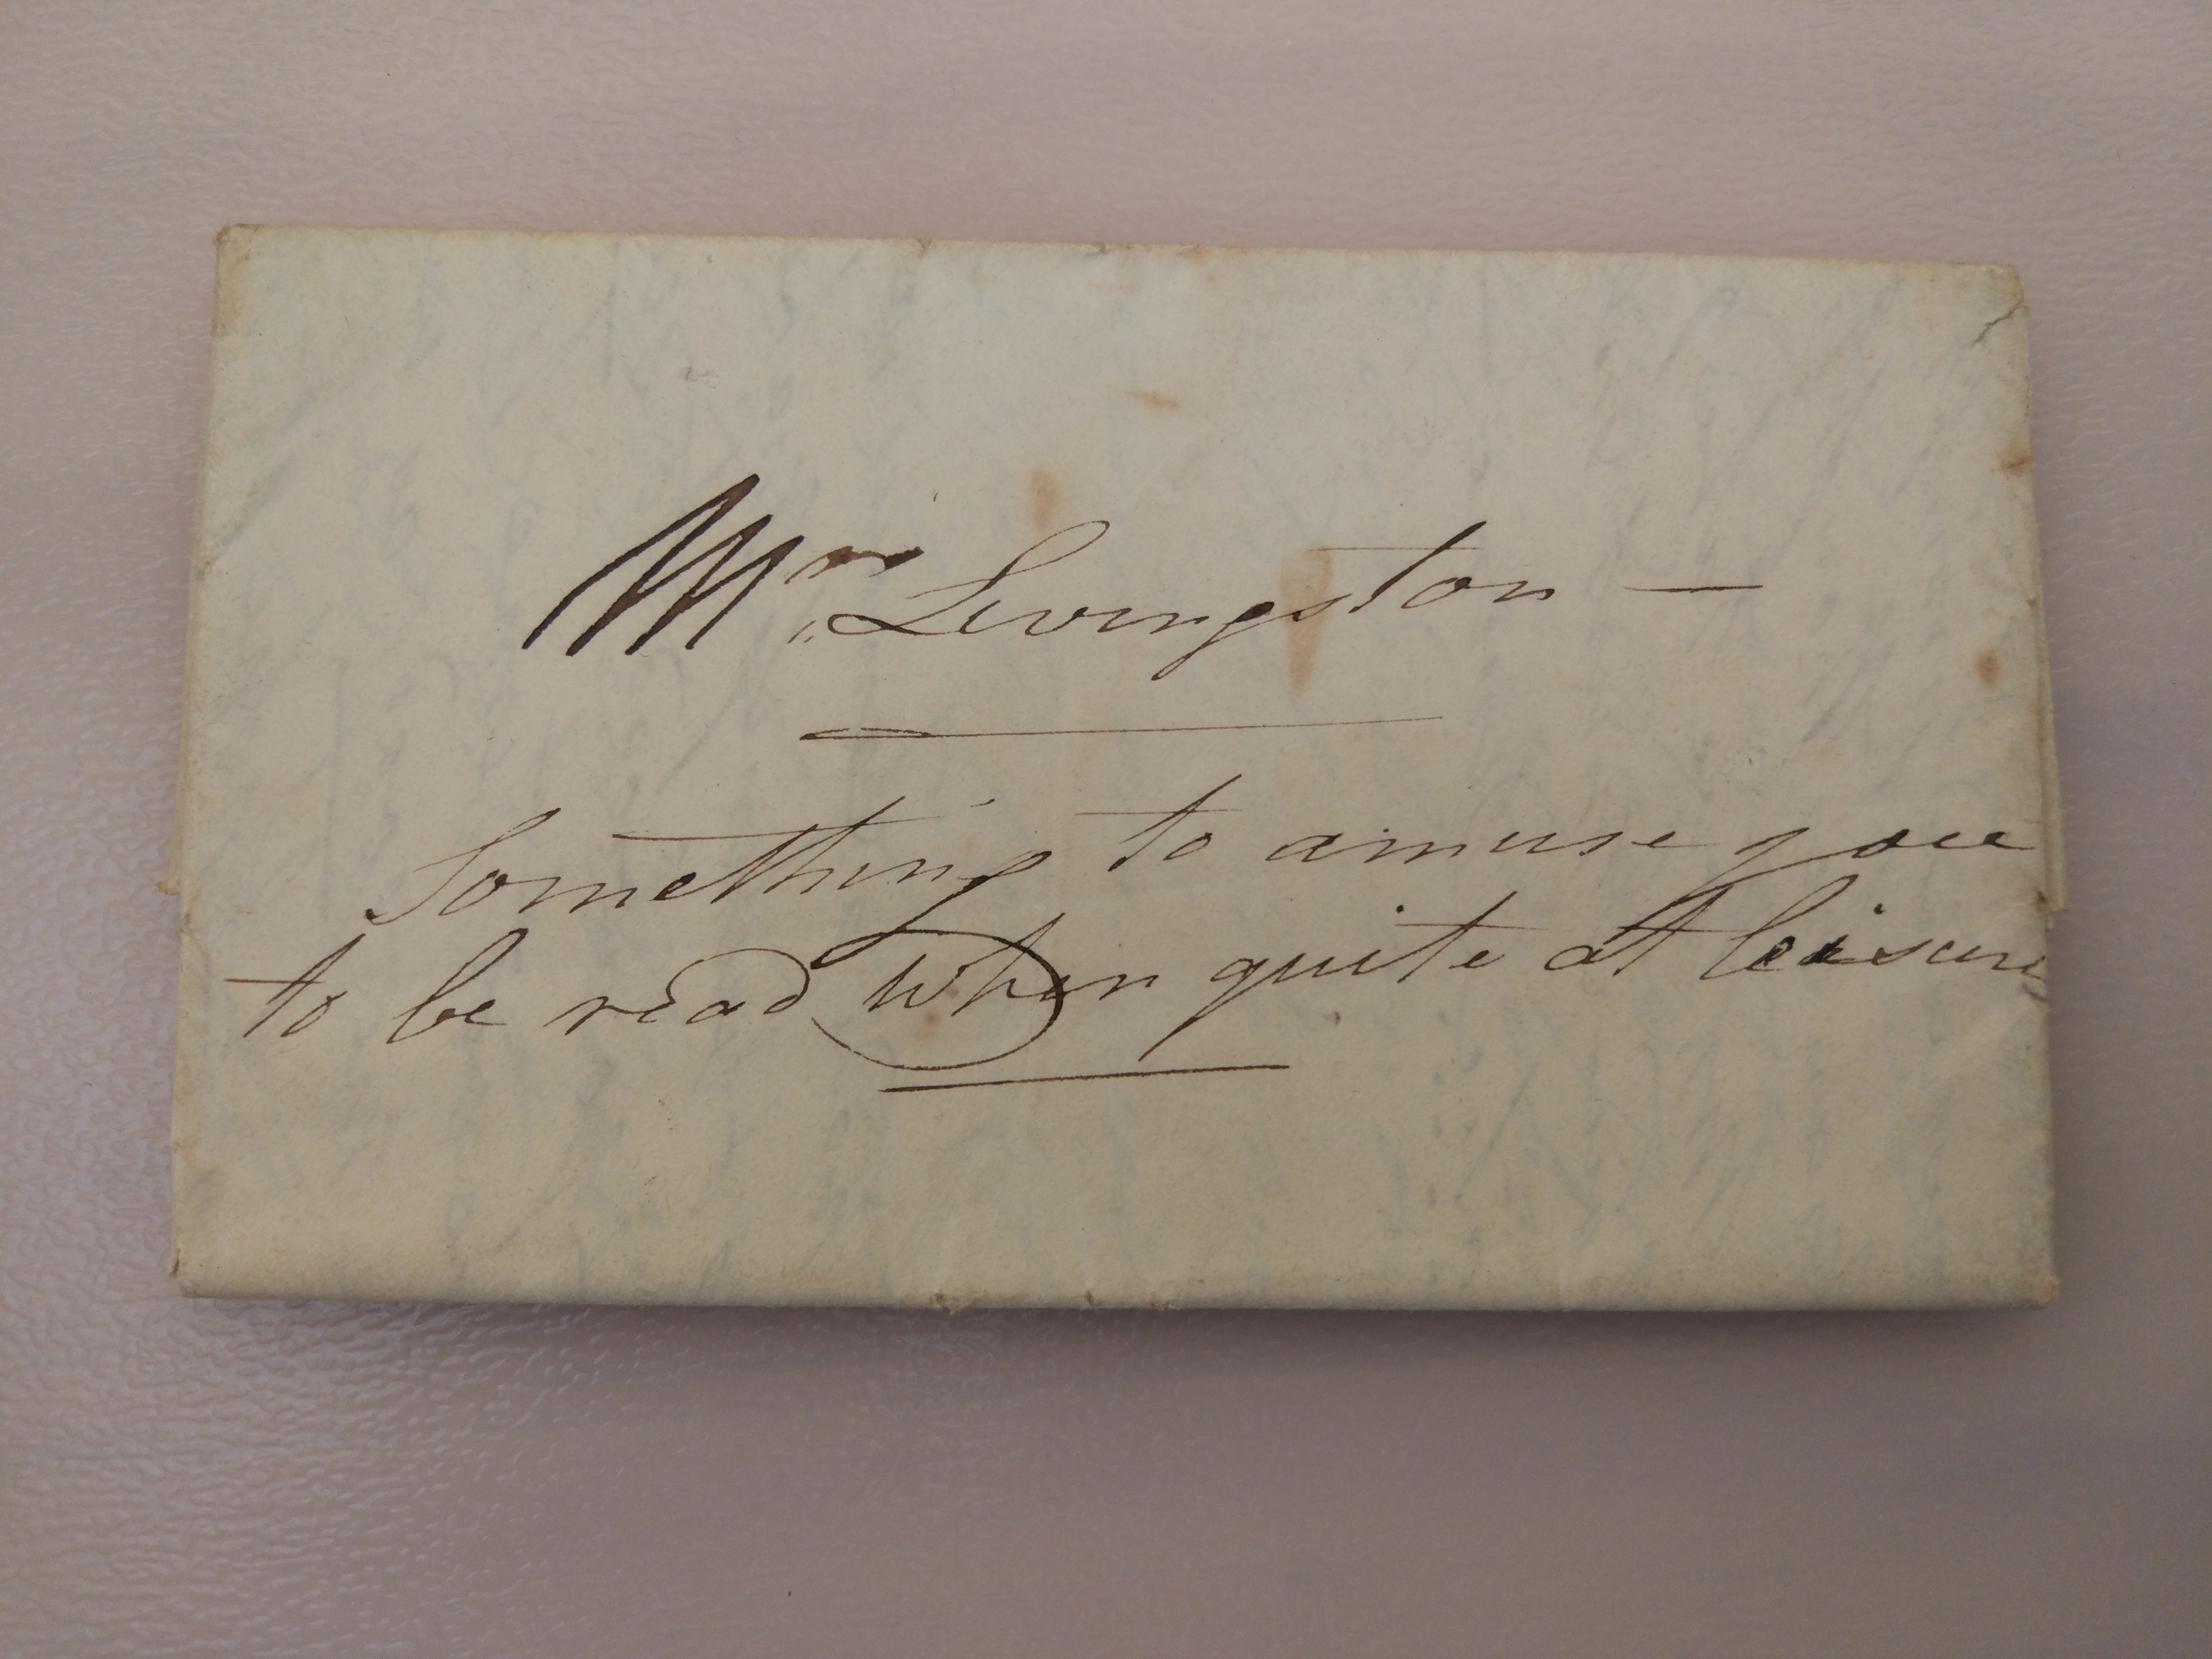 Mrs Livingston —
Something to amuse you
to be read when quite at leisure